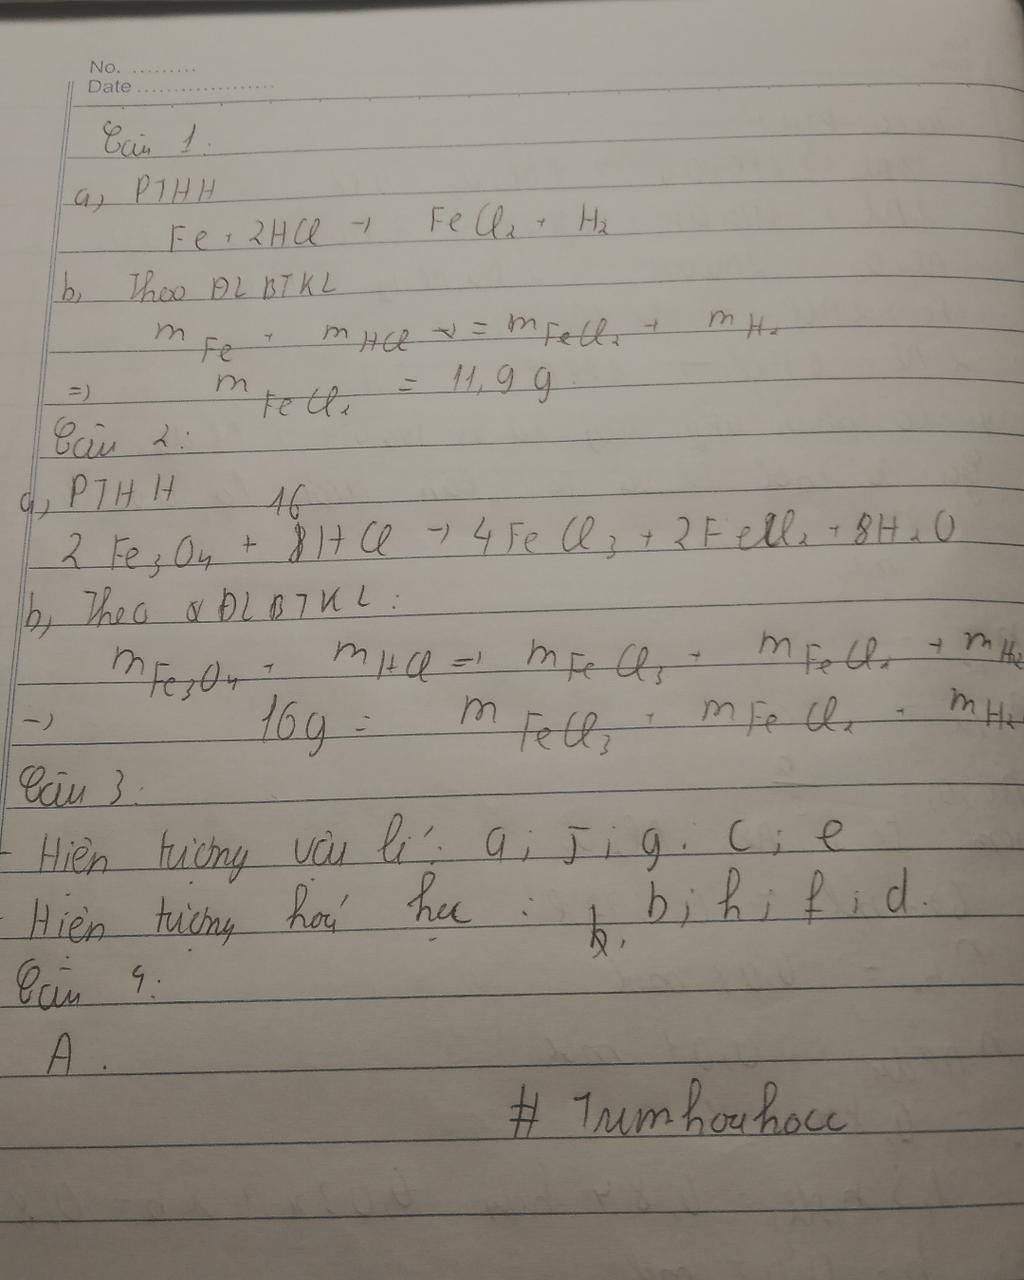 No. .........
Date ...................
Câu 1.
a, PTHH
Fe + 2HCl → FeCl₂ + H₂
b, Theo ĐLBTKL
m Fe + m HCl = m FeCl₂ + m H₂
=) m FeCl₂ = 11,9 g
Câu 2:
a, PTHH
2 Fe₃O₄ + 16 HCl → 4FeCl₃ + 2FeCl₂ + 8H₂O
b, Theo ĐLBTKL:
m Fe₃O₄ + m HCl =) m FeCl₃ + m FeCl₂ + m H₂
→ 16g = m FeCl₃ + m FeCl₂ + m H₂
Câu 3:
- Hiện tượng vâu lí: a; j; g. c; e
- Hiện tượng hoá học: b; h; f; d.
Câu 4:
A.
# Trumhoahocc